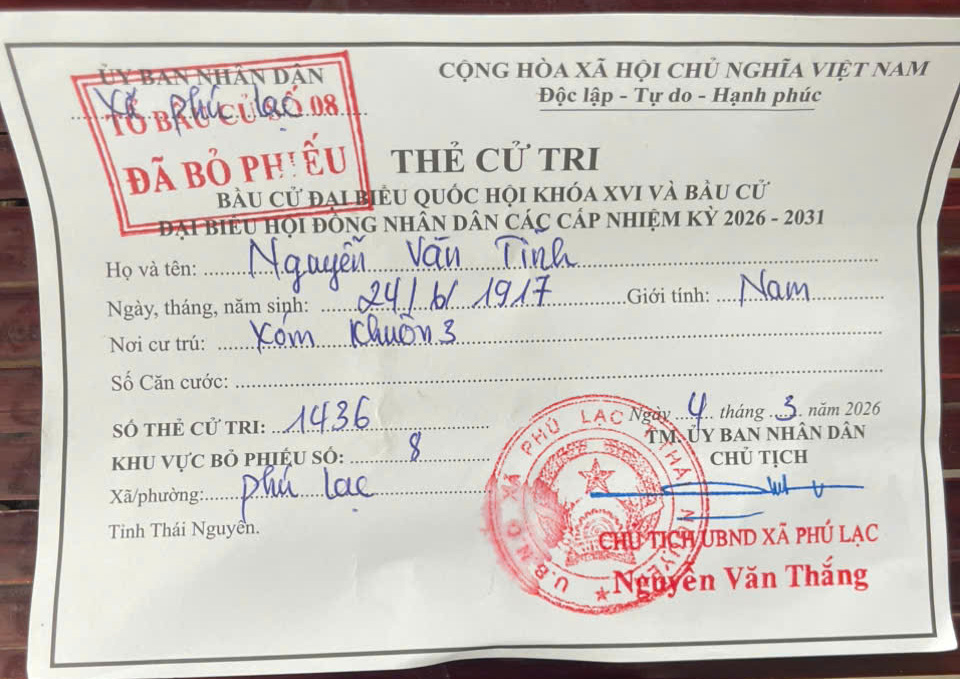 ỦY BAN NHÂN DÂN
Xã Phú Lạc
TỔ BẦU CỬ SỐ 08
ĐÃ BỎ PHIẾU
CỘNG HÒA XÃ HỘI CHỦ NGHĨA VIỆT NAM
Độc lập - Tự do - Hạnh phúc
THẺ CỬ TRI
BẦU CỬ ĐẠI BIỂU QUỐC HỘI KHÓA XVI VÀ BẦU CỬ
ĐẠI BIỂU HỘI ĐỒNG NHÂN DÂN CÁC CẤP NHIỆM KỲ 2026 - 2031
Họ và tên: Nguyễn Văn Tình
Ngày, tháng, năm sinh: 24/6/1917 Giới tính: Nam
Nơi cư trú: Xóm Khuôn 3
Số Căn cước:
SỐ THẺ CỬ TRI: 1436
KHU VỰC BỎ PHIẾU SỐ: 8
Xã/phường: Phú Lạc
Tỉnh Thái Nguyên.
Ngày 4 tháng 3 năm 2026
TM. ỦY BAN NHÂN DÂN
CHỦ TỊCH
U.B.N.D XÃ PHÚ LẠC T.THÁI NGUYÊN
CHỦ TỊCH UBND XÃ PHÚ LẠC
Nguyễn Văn Thắng